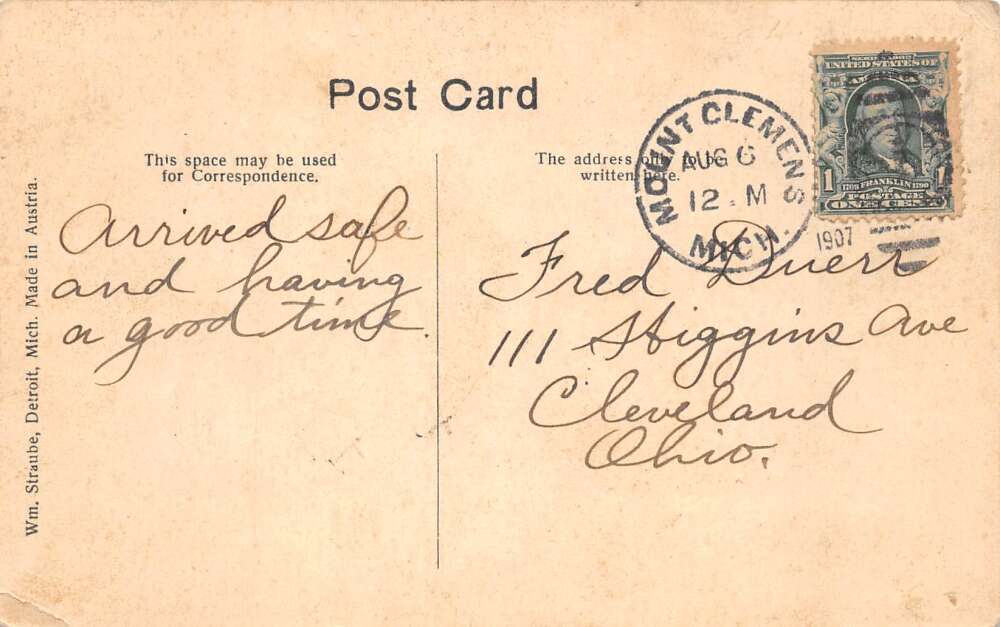 Post Card
This space may be used
for Correspondence.
Arrived safe
and having
a good time.
The address only to be
written here.
Fred Duerr
111 Higgins Ave
Cleveland
Ohio.
MOUNT CLEMENS
AUG 6
12 M
MICH.
1907
SERIES 1902
UNITED STATES OF
AMERICA
1 1
1706 FRANKLIN 1790
POSTAGE
ONE CENT
Wm. Straube, Detroit, Mich. Made in Austria.